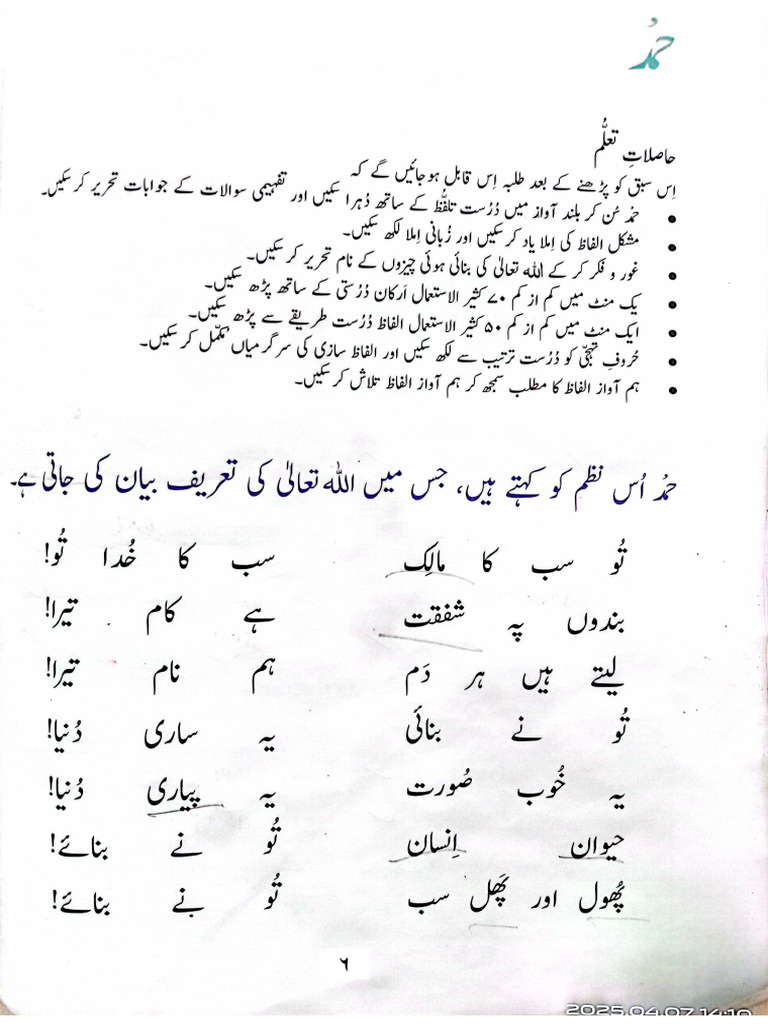 حمد
حاصلاتِ تعلّم
اِس سبق کو پڑھنے کے بعد طلبہ اِس قابل ہوجائیں گے کہ
• حمد سُن کر بلند آواز میں دُرُست تلفّظ کے ساتھ دُہرا سکیں اور تفہیمی سوالات کے جوابات تحریر کرسکیں۔
• مشکل الفاظ کی اِملا یاد کرسکیں اور زُبانی اِملا لکھ سکیں۔
• غور و فکر کر کے اللہ تعالیٰ کی بنائی ہوئی چیزوں کے نام تحریر کرسکیں۔
• یک منٹ میں کم از کم ۷۰ کثیر الاستعمال اَرکان دُرُستی کے ساتھ پڑھ سکیں۔
• ایک منٹ میں کم از کم ۵۰ کثیر الاستعمال الفاظ دُرُست طریقے سے پڑھ سکیں۔
• حُروفِ تہجّی کو دُرُست ترتیب سے لکھ سکیں اور الفاظ سازی کی سرگرمیاں مکمّل کرسکیں۔
• ہم آواز الفاظ کا مطلب سمجھ کر ہم آواز الفاظ تلاش کرسکیں۔
حمد اُس نظم کو کہتے ہیں، جس میں اللہ تعالیٰ کی تعریف بیان کی جاتی ہے۔
تُو سب کا مالِک سب کا خُدا تُو!
بندوں پہ شفقت ہے کام تیرا!
لیتے ہیں ہر دَم ہم نام تیرا!
تُو نے بنائی یہ ساری دُنیا!
یہ خُوب صُورت یہ پیاری دُنیا!
حیوان اِنسان تُو نے بنائے!
پُھول اور پَھل سب تُو نے بنائے!
۶
2025.04.07 14:10